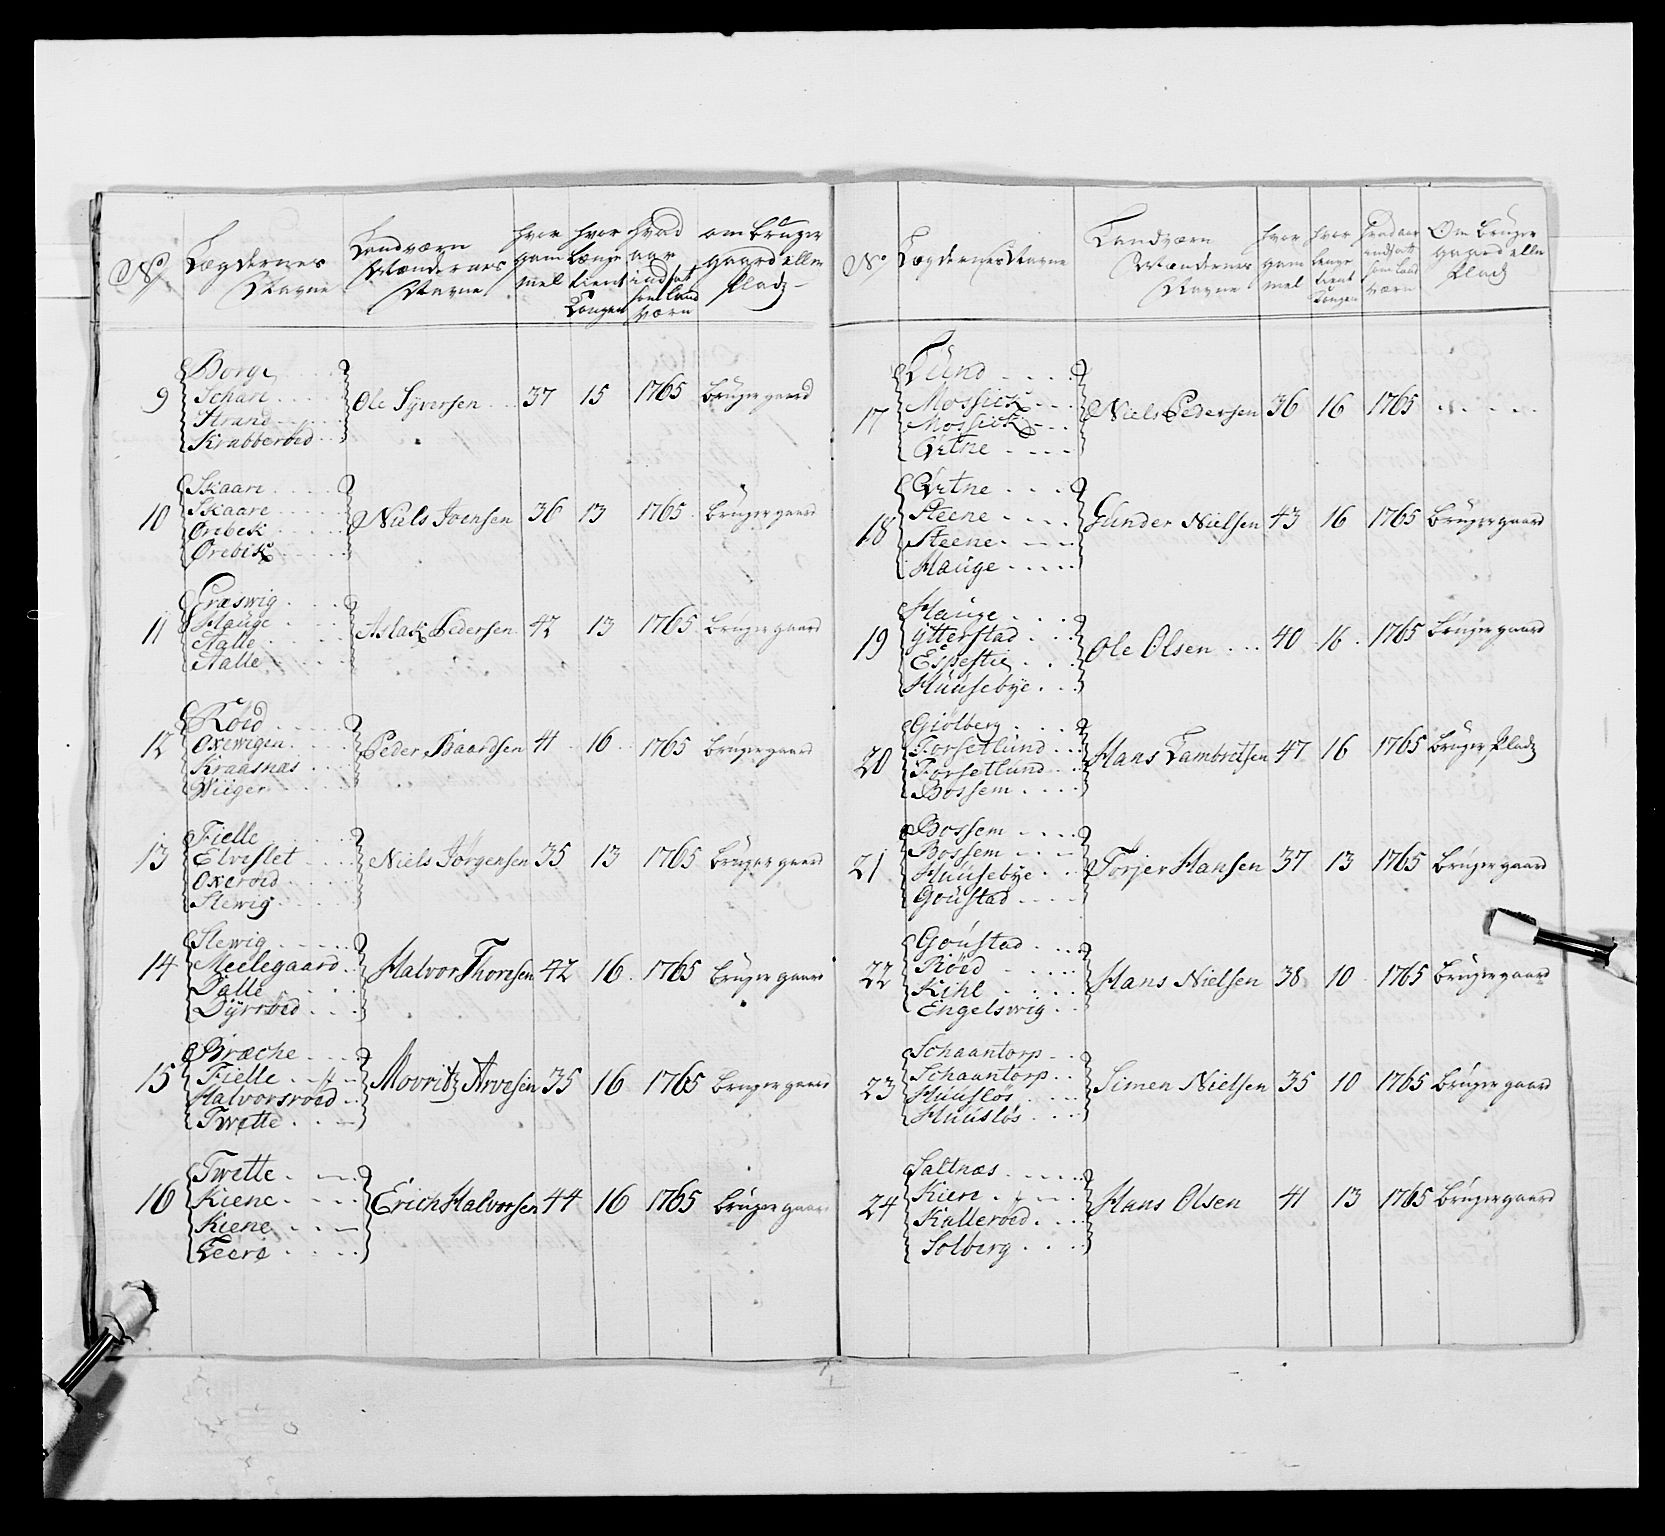 No
Lægdernes Navne
Landværn Mændernes Navne
hvor gammel
hvor længe tient Kongen
hvad aar indsat som land værn
om bruger gaard eller Plads
9
Borge
Schare
Strand
Krabberød
Ole Syversen 37 15 1765 bruger gaard
10
Skaare
Skaare
Örebek
Örebek
Niels Joensen 36 13 1765 bruger gaard
11
Græswig
Hauge
Aalle
Aalle
Aslak Pedersen 42 13 1765 bruger gaard
12
Röed
Oxewigen
Kraasnæs
Wiiger
Peder Baardsen 41 16 1765 bruger gaard
13
Fielle
Elveslet
Oxeroed
Slewig
Niels Jörgensen 35 13 1765 bruger gaard
14
Slewig
Meelegaard
Dalle
Dÿrroed
Halvor Thoresen 42 16 1765 bruger gaard
15
Bræche
Fielle
Halvorsroed
Twette
Movritz Arvesen 35 16 1765 bruger gaard
16
Twette
Kiene
Kiene
Leere
Erich Halvorsen 44 16 1765 bruger gaard
No
Lægdernes Navne
Landværn Mændernes Navne
hvor gammel
hvor længe tient Kongen
hvad aar indsatt som land værn
Om bruger gaard eller Plads
17
Lund
Mossick
Mossick
Qvitne
Niels Pedersen 36 16 1765
18
Qvitne
Steene
Steene
Hauge
Gunder Nielsen 43 16 1765 bruger gaard
19
Hauge
Ÿtterstad
Espestie
Huusebÿe
Ole Olsen 40 16 1765 bruger gaard
20
Giölberg
Forsetlund
Forsetlund
Bossem
Hans Lambretsen 47 16 1765 bruger Plads
21
Bossem
Bossem
Huusebÿe
Goustad
Torjer Hansen 37 13 1765 bruger gaard
22
Goustad
Röed
Kihl
Engelswig
Hans Nielsen 38 10 1765 bruger gaard
23
Schaantorp
Schaantorp
Huuslös
Huuslös
Simen Nielsen 35 10 1765 bruger gaard
24
Saltnæs
Kiere
Kalleroed
Solberg
Hans Olsen 41 13 1765 bruger gaard